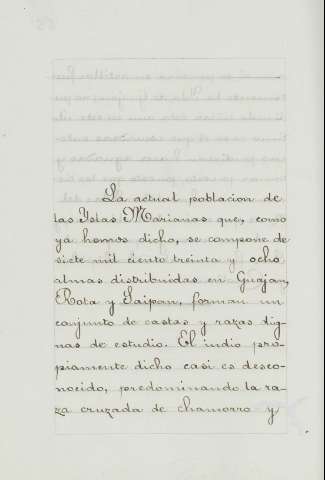 La actual poblacion de
las Yslas Marianas que, como
ya hemos dicho, se compone de
siete mil ciento treinta y ocho
almas distribuidas en Guajan,
Rota y Saipan, forman un
conjunto de castas y razas dig-
nas de estudio. El indio pro-
piamente dicho casi es desco-
nocido, predominando la ra-
za cruzada de chamorro y